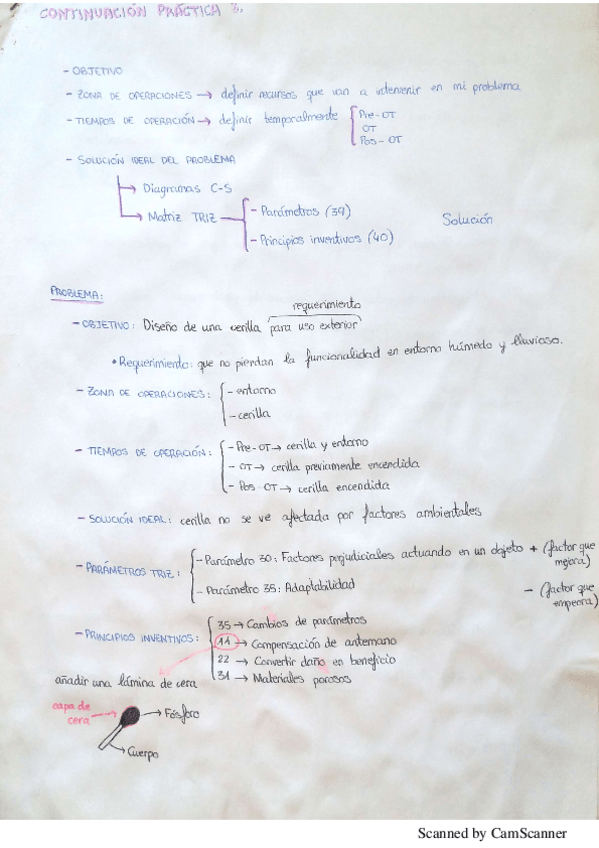 CONTINUACIÓN PRÁCTICA 3.
- OBJETIVO
- ZONA DE OPERACIONES → definir recursos que van a intervenir en mi problema
- TIEMPOS DE OPERACIÓN → definir temporalmente
Pre-OT
OT
Pos-OT
- SOLUCIÓN IDEAL DEL PROBLEMA
Diagramas C-S
Matriz TRIZ
- Parámetros (39)
- Principios inventivos (40)
Solución
PROBLEMA:
requerimiento
- OBJETIVO: Diseño de una cerilla para uso exterior
• Requerimiento: que no pierdan la funcionalidad en entorno húmedo y lluvioso.
- ZONA DE OPERACIONES:
- entorno
- cerilla
- TIEMPOS DE OPERACIÓN:
- Pre-OT → cerilla y entorno
- OT → cerilla previamente encendida
- Pos-OT → cerilla encendida
- SOLUCIÓN IDEAL: cerilla no se ve afectada por factores ambientales
- PARÁMETROS TRIZ:
- Parámetro 30: Factores perjudiciales actuando en un objeto + (factor que mejora)
- Parámetro 35: Adaptabilidad - (factor que empeora)
- PRINCIPIOS INVENTIVOS:
35 → Cambios de parámetros
11 → Compensación de antemano
22 → Convertir daño en beneficio
31 → Materiales porosos
añadir una lámina de cera
capa de cera
→ Fósforo
→ Cuerpo
Scanned by CamScanner